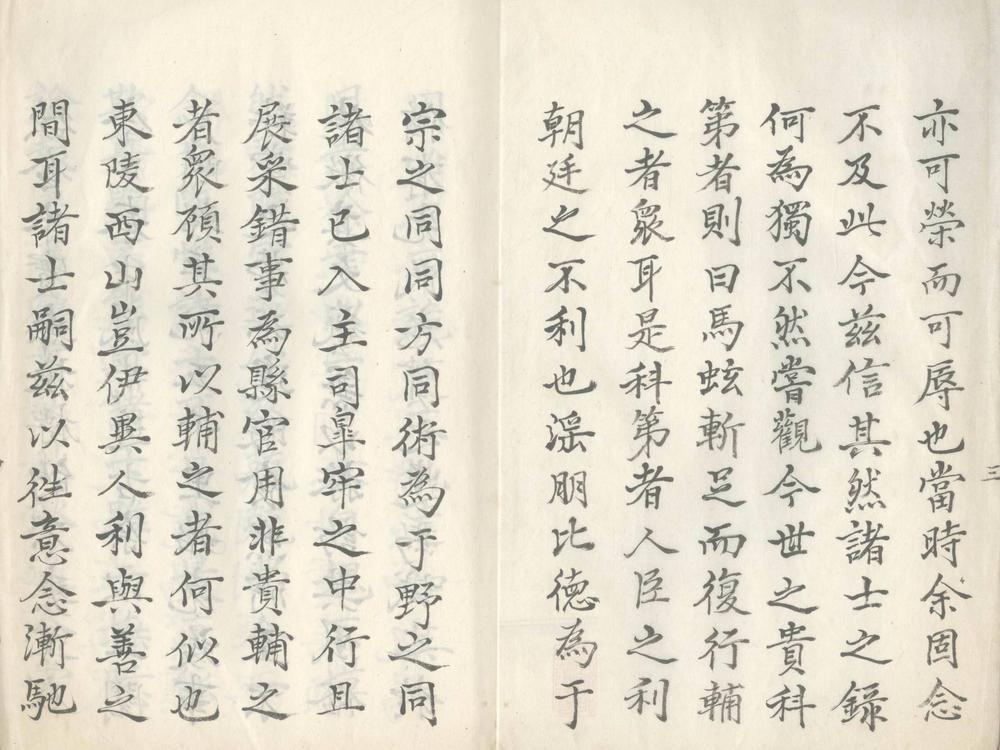 亦可榮而可辱也當時余固念
不及此今茲信其然諸士之錄
何為獨不然嘗觀今世之貴科
第者則曰馬蚿斬足而復行輔
之者衆耳是科第者人臣之利
朝廷之不利也淫朋比德為于
宗之同同方同術為于野之同
諸士已入主司皐牢之中行且
展采錯事為縣官用非貴輔之
者衆顧其所以輔之者何似也
東陵西山豈伊異人利與善之
間耳諸士嗣茲以徃意念漸馳
三